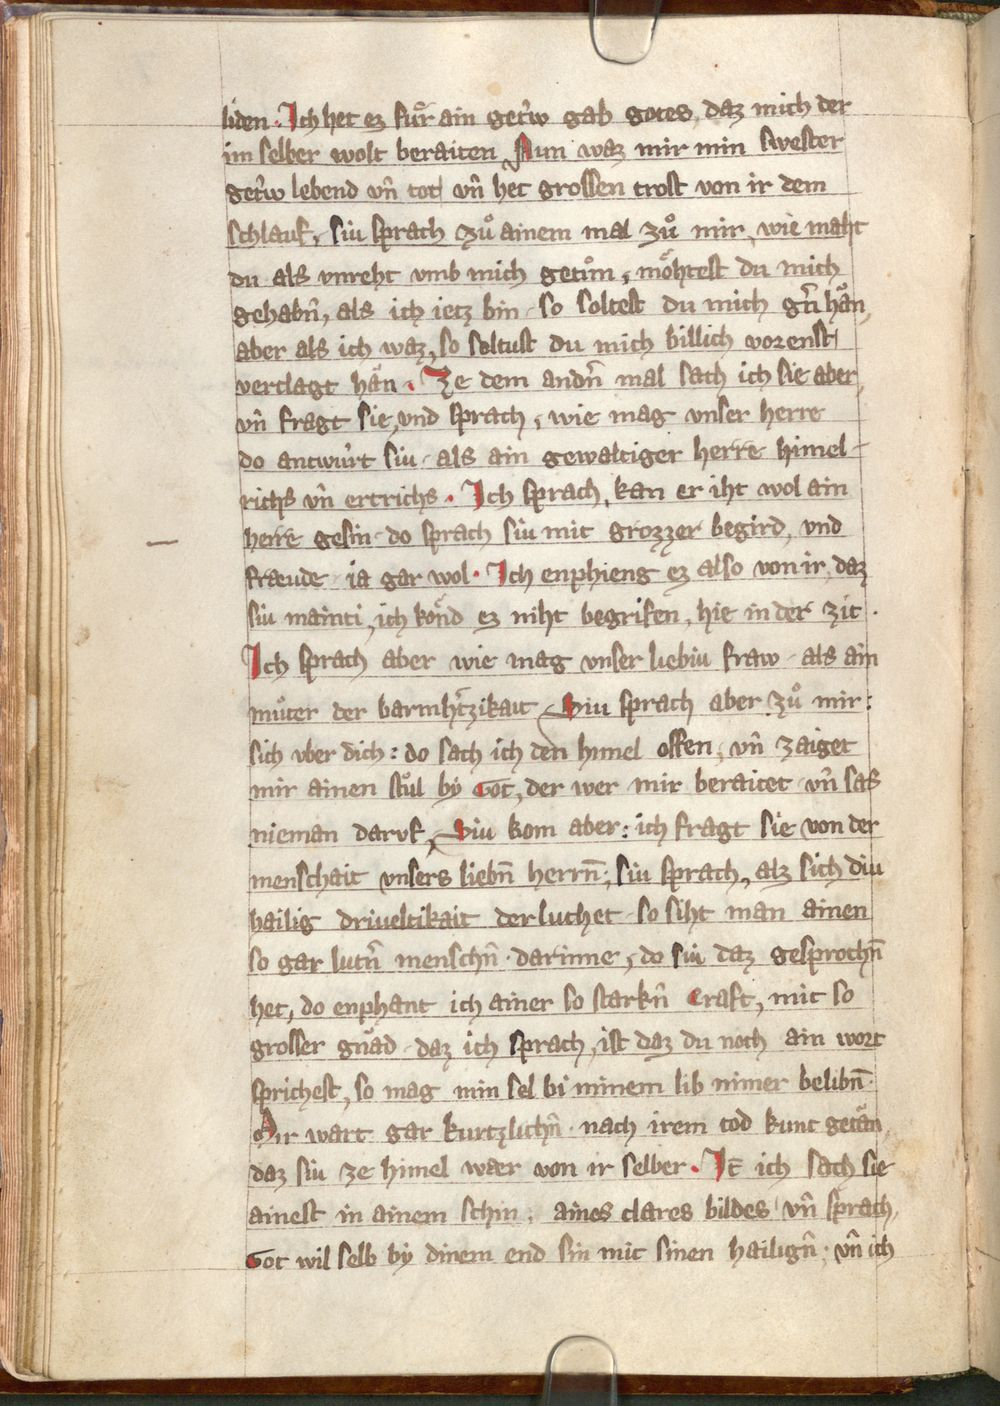 liden · Ich het ez fuͤr ain getrͥw gab gotes, daz mich der
im selber wolt beraiten Nun waz mir min swester
getrͥw lebend vn̄ tot vn̄ het grossen trost von ir dem
schlauf, siu sprach zuͦ ainem mal zuͦ mir, wie maht
du als vnreht vmb mich getuͦn, moͤhtest du mich
gehabn̄, als ich ietz bin · so soltest du mich gern haͤn,
aber als ich waz, so soltust du mich billich vorenst
verclagt haͤn · Ze dem andn̄ mal sach ich sie aber,
vn̄ fragt sie, vnd sprach, wie mag vnser herre
do antwuͤrt siu · als ain gewaltiger herre himel-
richs vn̄ ertrichs · Ich sprach, kan er iht wol ain
herre gesin · do sprach siu mit grozzer begird, vnd
fraeude · ia gar wol · Ich enphieng ez also von ir, daz
siu mainti, ich koͤnd ez niht begrifen, hie in der zit ·
Ich sprach aber wie mag vnser liebiu fraw · als ain
muͦter der barmhertzikait Siu sprach aber zuͦ mir :
sich vber dich : do sach ich den himel offen, vn̄ zaiget
mir ainen stuͦl by Got, der wer mir beraitet vn̄ sas
nieman daruf, Siu kom aber : ich fragt sie von der
menschait vnsers liebn̄ herrn̄ ; siu sprach, alz sich diu
hailig driueltikait derluchet · so siht man ainen
so gar lutn̄ menschn̄ · darinne, do siu daz gesprochn̄
het, do enphant ich ainer so starkn̄ Craft, mit so
grosser gnaͤd · daz ich sprach, ist daz du noch ain wort
sprichest, so mag min sel bi minem lib nimer belibn̄ ·
Mir wart gar kurtzlichn̄ · nach irem tod kunt getaͤn,
daz siu ze himel waer von ir selber · It̄ ich sach sie
ainest in ainem schin, aines clares bildes vn̄ sprach,
Got wil selb by dinem end sin mit sinen hailign̄ ; vn̄ ich